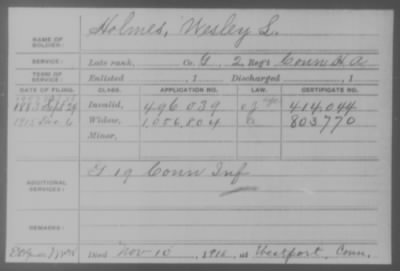 NAME OF SOLDIER: Holmes, Wesley L.
SERVICE: Late rank, Co. G, 2 Reg't Conn H. A.
TERM OF SERVICE: Enlisted , 1 Discharged , 1
DATE OF FILING. CLASS. APPLICATION NO. LAW. CERTIFICATE NO.
1883 Sept 24 Invalid, 496 039 414,044
1915 Dec 6 Widow, 1,056,804 803770
Minor,
ADDITIONAL SERVICES: 19 Conn Inf
REMARKS:
Died Nov 10 , 191 , at Westport, Conn.